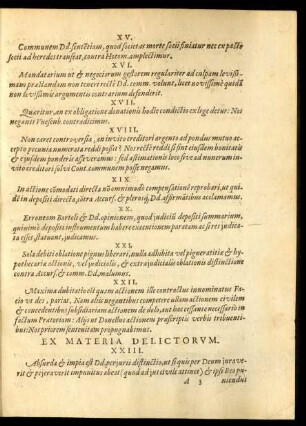 XV.
Communem Dd. sententiam, quod societas morte socii finiatur nec ex pacto
socii ad heredes transeat, contra Hotom. amplectimur.
XVI.
Mandatarium ut & negociorum gestorem regulariter ad culpam levissi-
mam præstandam non teneri recte Dd. comm. volunt, licet novissimè quidā
non levissimis argumentis contrarium defenderit.
XVII.
Quæritur, an ex obligatione donationis hodie condictio ex lege detur: Nos
negantis Vulteio contradicimus.
XVIII.
Non caret controversia, an invito creditori argento ad pondus mutuo ac-
cepto pecunia numerata reddi possit? Nos recte reddi si sint eiusdem bonitatis
& eiusdem ponderis asseveramus: sed æstimationis loco seu ad numerum in-
vito creditori solvi Cont. communem posse negamus.
XIX.
In actione cōmodati directa nō omnimodò compensationē reprobari, ut qui-
dē in depositi directa, cōtra Accurs. & plerosq; Dd. affirmamus acclamamus.
XX.
Erroneam Bartoli & Dd. opinionem, quod judicii depositi summarium,
quinimò depositi instrumentum habere executionem paratam ac si res judica-
ta esset, statuant, judicamus.
XXI.
Sola debiti oblatione pignus liberari, nulla adhibita vel pigneratitiæ &
hypothecariæ actionis, vel judicialis, & extrajudicialis oblationis distinctione
contra Accurs. & comm. Dd. malumus.
XXII.
Maxima dubitatio est quam actionem ille contractus innominatus Fa-
cio ut des, pariat. Nam aliis urgentibus competere ullam actionem civilem
& concedentibus subsidiariam actionem de dolo, aut hoc casu necessario in
factum Prætoriam: Aliis ut Donellus actionem præscriptis verbis tribuenti-
bus: Nos priorem sententiam propugnabimus.
EX MATERIA DELICTORVM.
XXIII.
Absurda & impia est Dd. perjurii distinctio, ut si quis per Deum jurave-
rit & pejeraverit impunitus abeat (quod ad jus civile attinet) & ipsi Deo pu-
A 3 niendus